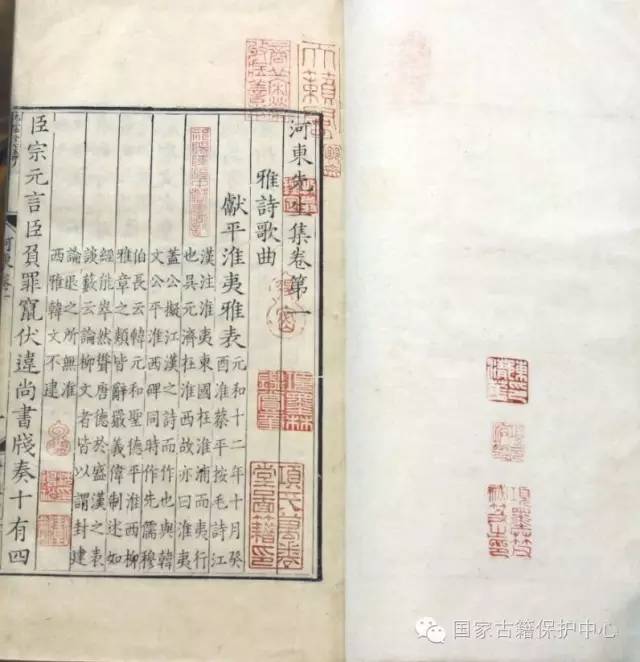 河東先生集卷第一
雅詩歌曲
獻平淮夷雅表
元和十二年十月癸
酉淮蔡平按毛詩江
漢注淮夷東國在淮浦而夷行
也吳元濟在淮西故亦曰淮夷
蓋公擬江漢之詩而作也與韓
文公平淮西碑同時作先儒穆
伯長云韓元和聖德平淮西柳
雅章之類皆辭嚴義偉制述如
經能崒然聳唐德於盛漢之表
談藪云論柳文者皆以謂封建
論退之所無淮
西雅韓文不逮
臣宗元言臣負罪竄伏違尚書牋奏十有四
天籟閣
項墨林鑑賞章
項氏萬卷堂圖籍印
国家古籍保护中心